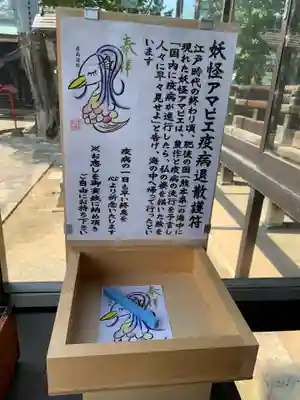 妖怪アマビエ疫病退散護符
江戸時代の終わり頃、肥後の国(熊本県)の海中に
現れた妖怪アマビエは、豊作と疫病の流行を予言し
「国内に疫病が進行したら、私の姿を描いた絵を
人々に早々見せよ」と告げ、海の中へ帰って行ったとい
います
奉拝
疫病の一日も早い終息を
心より祈念いたします
※お志しを御賽銭に納め頂き
ご自由にお持ち下さい
奉拝